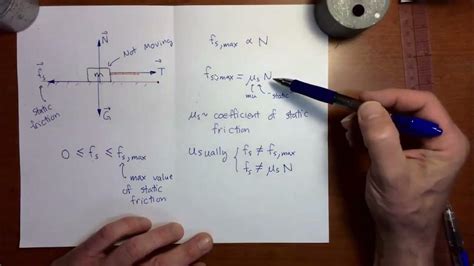 N⃗
Not Moving
f⃗s
m
T⃗
static
friction
G⃗
0 ≤ fs ≤ fs,max
max value
of static
friction
fs,max ∝ N
fs,max = μs N
mu static
μs ~ coefficient of static
friction
usually { fs ≠ fs,max
fs ≠ μs N